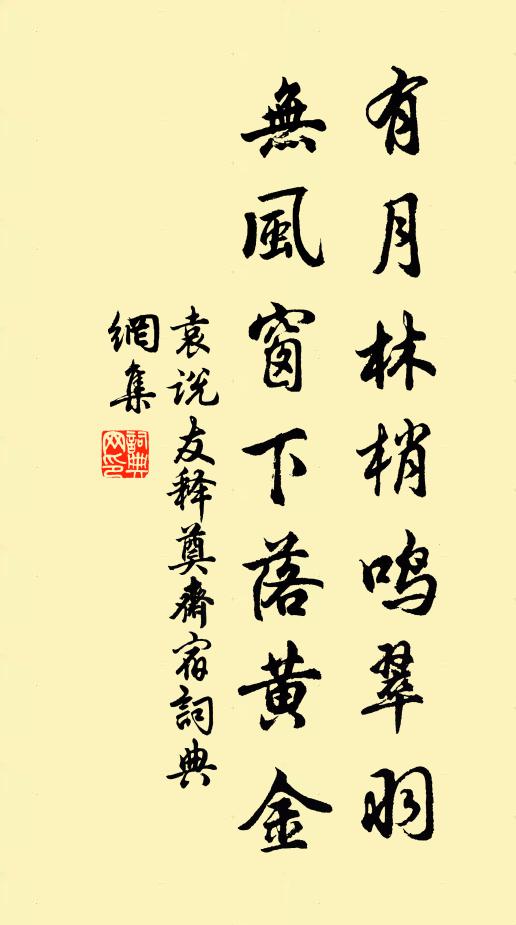 有月林梢鸣翠羽
無風窗下落黄金
袁说友释奠齋宿詞典
網集
詞典網印